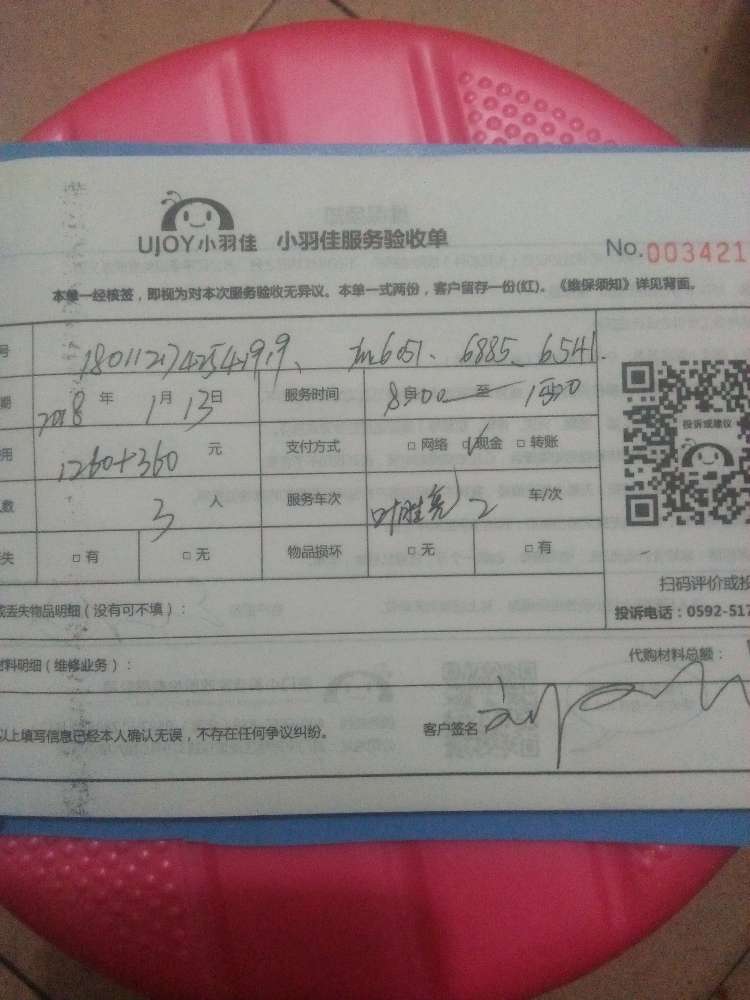 UJOY小羽佳 小羽佳服务验收单
No.003421
本单一经核签，即视为对本次服务验收无异议。本单一式两份，客户留存一份(红)。《维保须知》详见背面。
号 6051、6885、6541.
期 2018年1月13日 服务时间 8:00至
用 1260+360元 支付方式 □网络 ☑现金 □转账
人数 3人 服务车次 叶胜亮 2 车/次
失 □有 □无 物品损坏 □无 □有
投诉或建议
扫码评价或投
或丢失物品明细（没有可不填）：
投诉电话：0592-517
材料明细（维修业务）：
代购材料总额：
以上填写信息已经本人确认无误，不存在任何争议纠纷。
客户签名